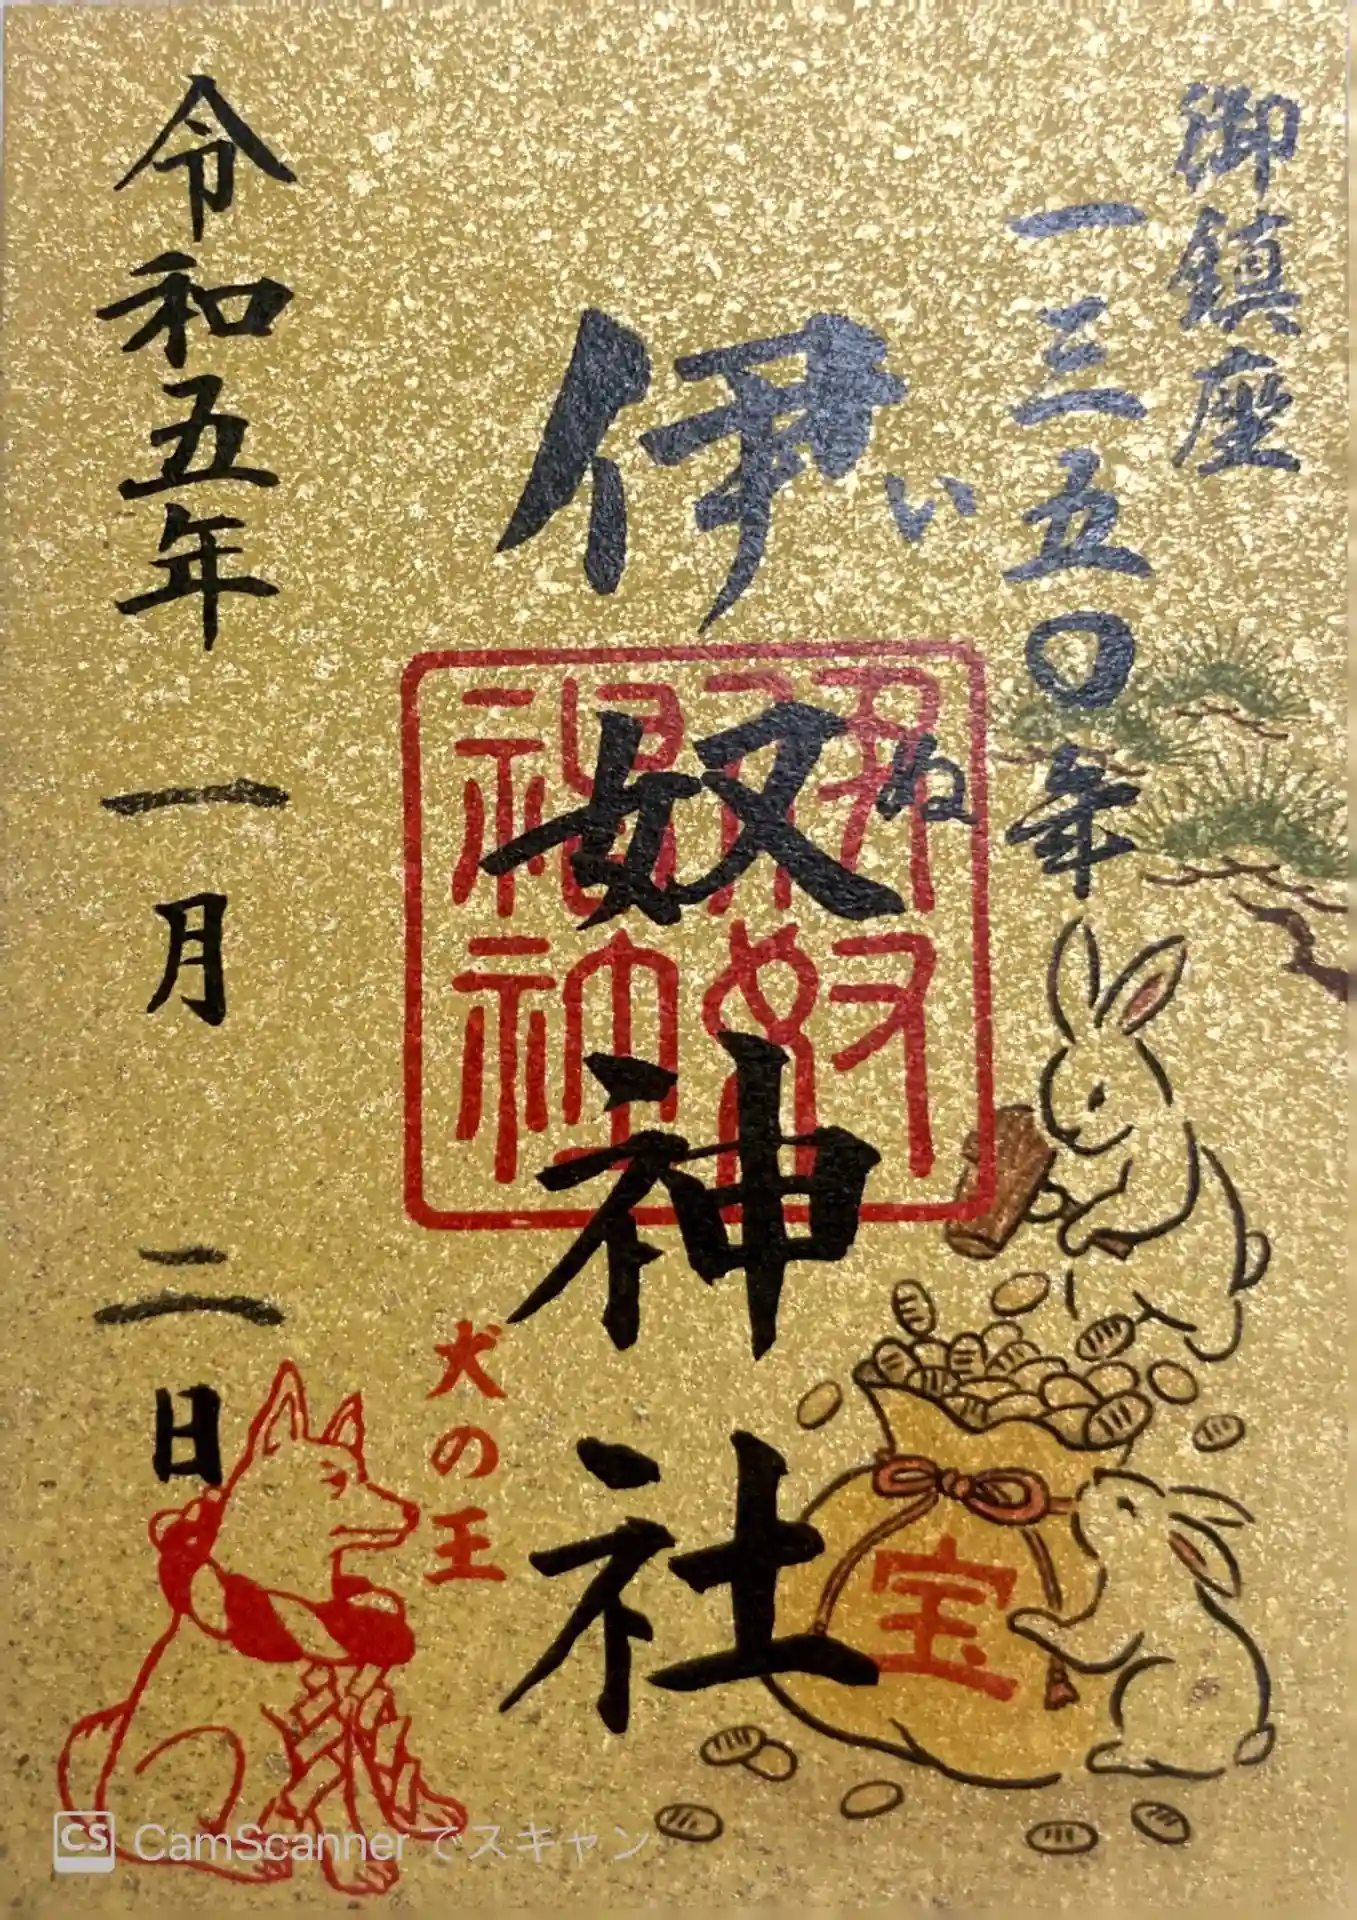 御鎮座
一三五〇年
伊奴神社
いぬ
伊奴神社
令和五年 一月 二日
犬の王
宝
CS CamScannerでスキャン